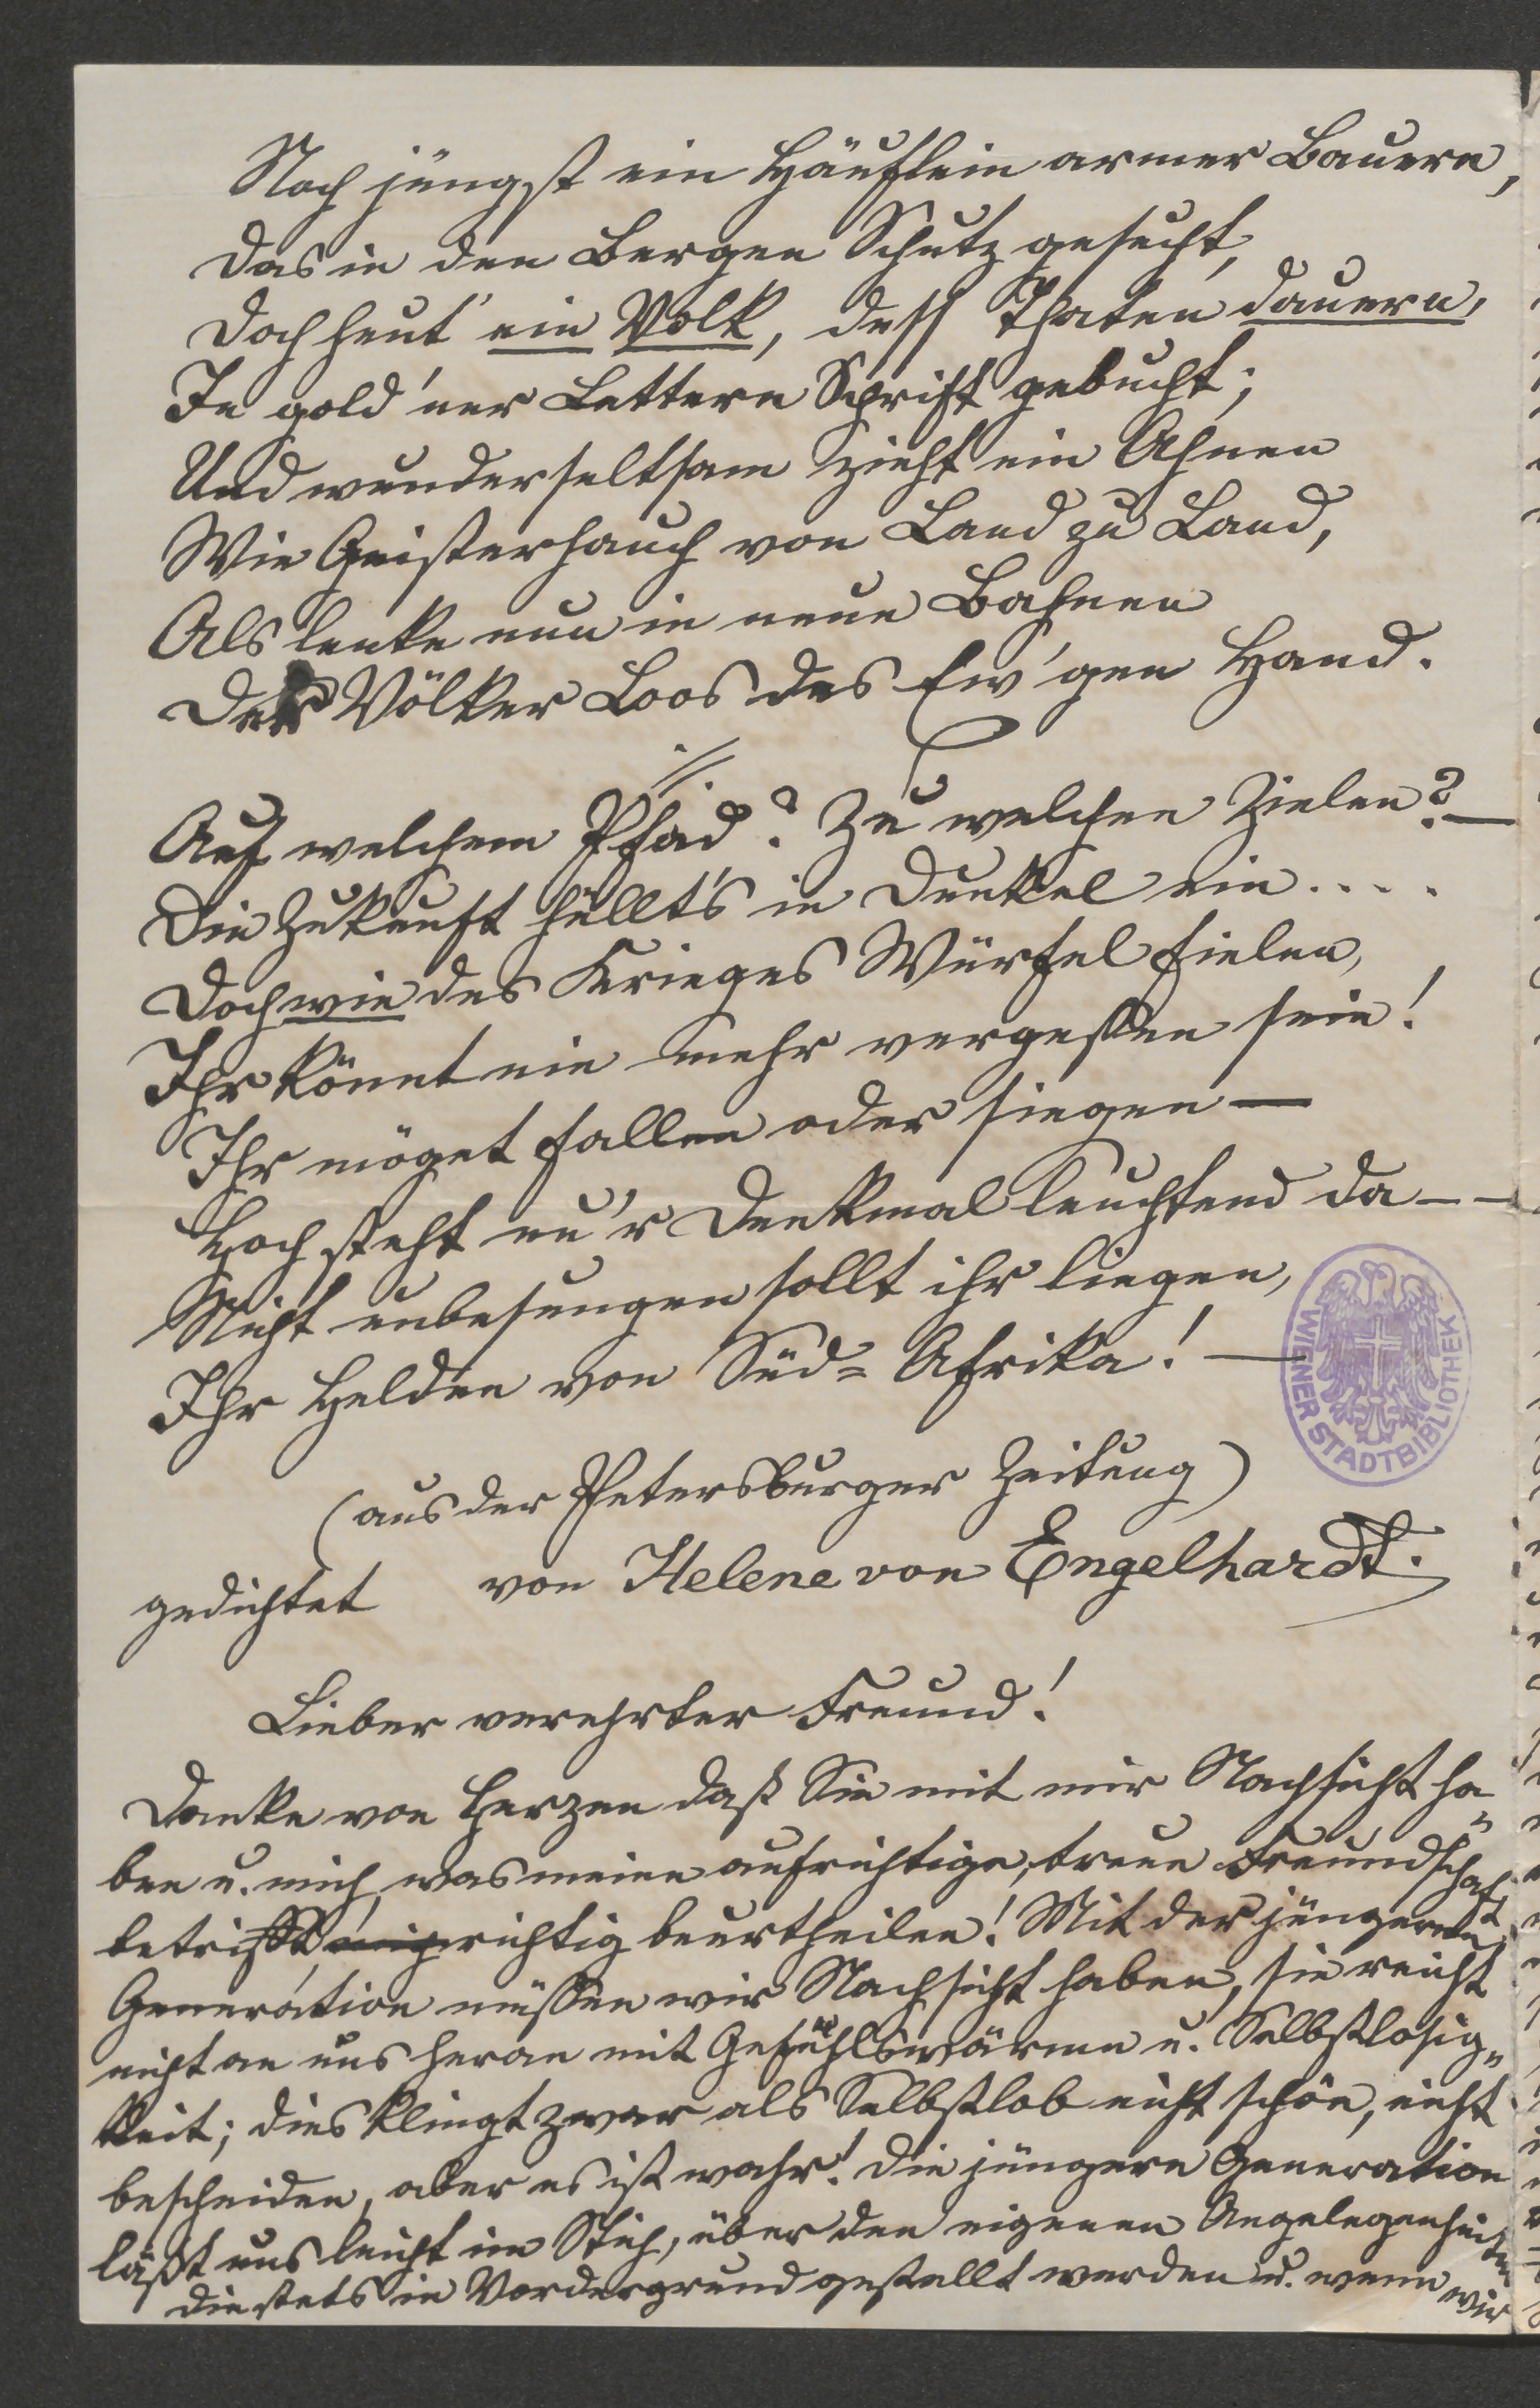 Noch jüngst ein Häuflein armer Bauern,
Das in den Bergen Schutz gesucht,
Doch heut' ein Volk, dess Thaten dauern,
In gold'ner Lettern Schrift gebucht;
Und wunderseltsam zieht ein Ahnen
Wie Geisterhauch von Land zu Land,
Als lenke nun in neue Bahnen
Der Völker Loos des Ew'gen Hand.
Auf welchem Pfad? Zu welchen Zielen? —
Die Zukunft hüllt's in Dunkel ein....
Doch wie des Krieges Würfel fielen,
Ihr könnt nie mehr vergessen sein!
Ihr möget fallen oder siegen —
Hoch steht eu'r Denkmal leuchtend da — —
Nicht unbesungen sollt ihr liegen,
Ihr Helden von Süd-Afrika! —
(aus der Petersburger Zeitung)
gedichtet von Helene von Engelhardt.
WIENER STADTBIBLIOTHEK
Lieber verehrter Freund!
Danke von Herzen daß Sie mit mir Nachsicht ha-
ben u. mich, was meine aufrichtige, treue Freundschaft
betrifft, richtig beurtheilen! Mit der jüngeren
Generation müssen wir Nachsicht haben, sie reicht
nicht an uns heran mit Gefühlswärme u. Selbstlosig-
keit; dies klingt zwar als Selbstlob nicht schön, nicht
bescheiden, aber es ist wahr! Die jüngere Generation
läßt uns leicht im Stich, über den eigenen Angelegenheiten
die stets in Vordergrund gestellt werden u. wenn wir